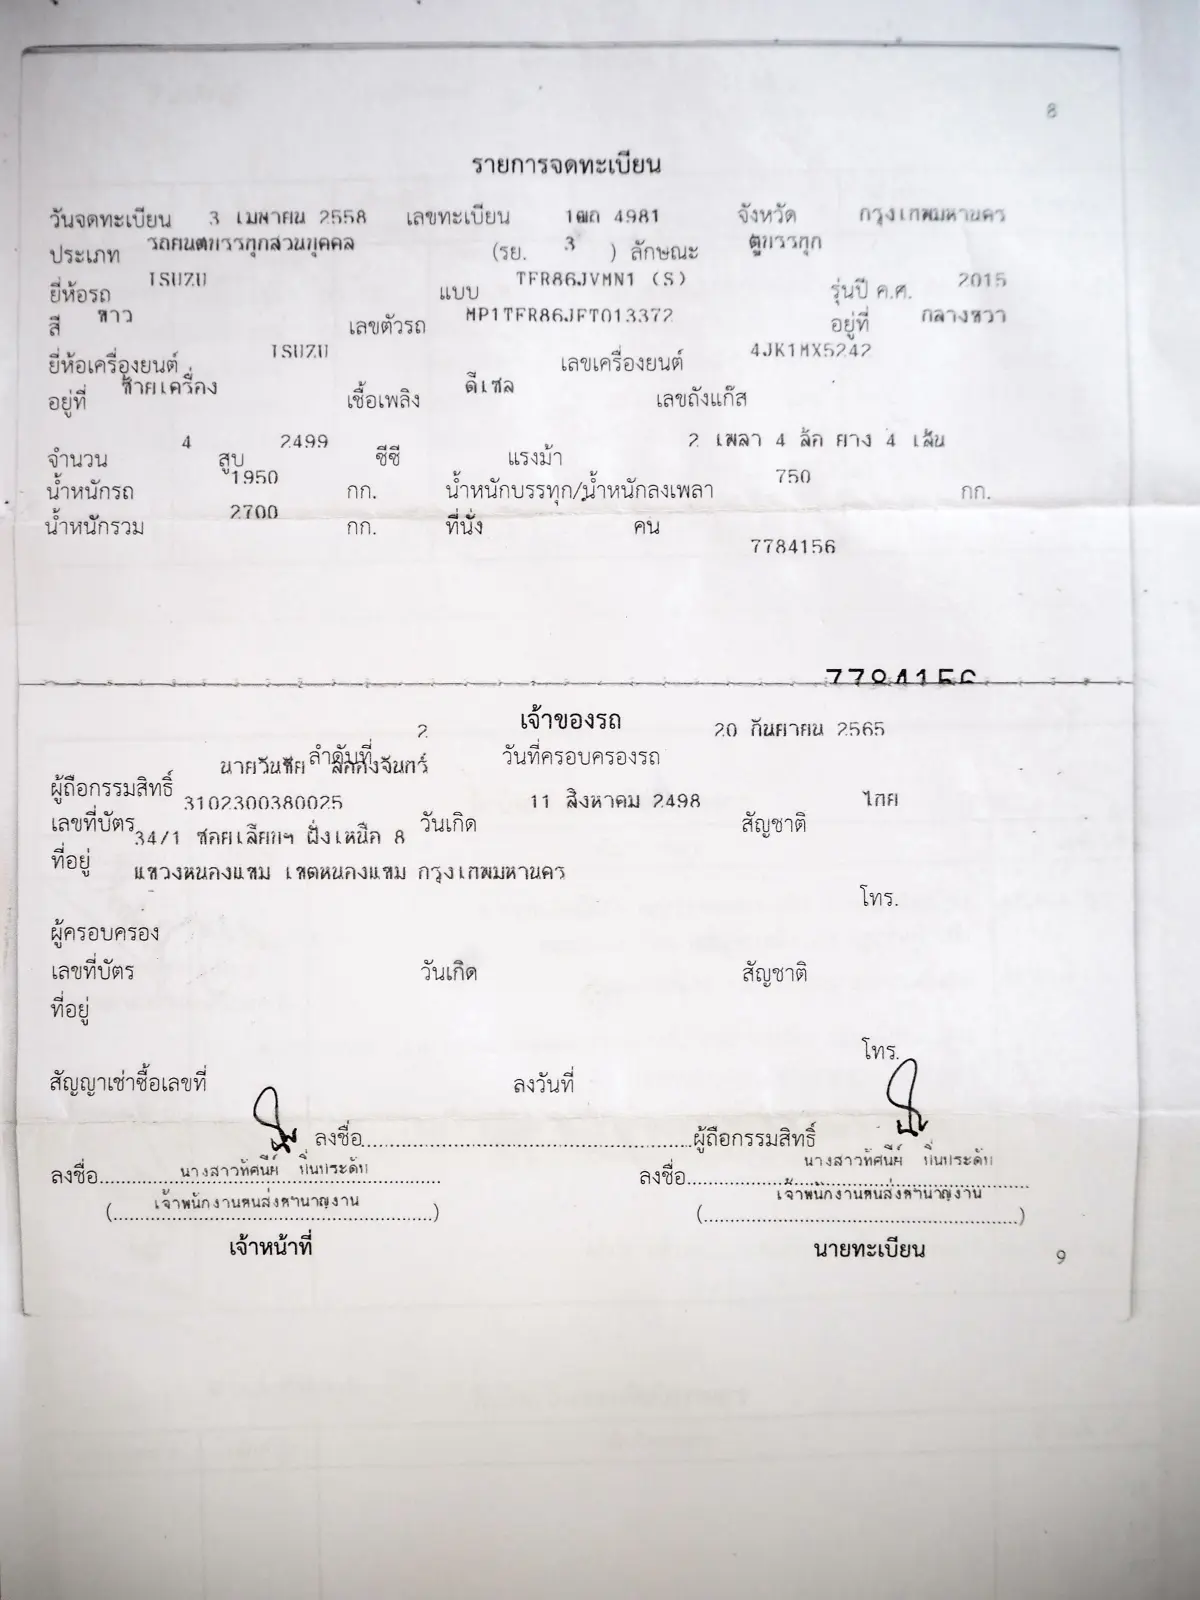 8
รายการจดทะเบียน
วันจดทะเบียน 3 เมษายน 2558 เลขทะเบียน 1ฒถ 4981 จังหวัด กรุงเทพมหานคร
ประเภท รถยนต์บรรทุกส่วนบุคคล (รย. 3 ) ลักษณะ ตู้บรรทุก
ยี่ห้อรถ ISUZU แบบ TFR86JVMN1 (S) รุ่นปี ค.ศ. 2015
สี ขาว เลขตัวรถ MP1TFR86JFT013372 อยู่ที่ กลางขวา
ยี่ห้อเครื่องยนต์ ISUZU เลขเครื่องยนต์ 4JK1MX5242
อยู่ที่ ซ้ายเครื่อง เชื้อเพลิง ดีเซล เลขถังแก๊ส
จำนวน 4 สูบ 2499 ซีซี แรงม้า 2 เพลา 4 ล้อ ยาง 4 เส้น
น้ำหนักรถ 1950 กก. น้ำหนักบรรทุก/น้ำหนักลงเพลา 750 กก.
น้ำหนักรวม 2700 กก. ที่นั่ง คน
7784156
7784156
เจ้าของรถ
ลำดับที่ 2 วันที่ครอบครองรถ 20 กันยายน 2565
ผู้ถือกรรมสิทธิ์ นายวันชัย
เลขที่บัตร 3102300380025 วันเกิด 11 สิงหาคม 2498 สัญชาติ ไทย
ที่อยู่ 34/1 ซอยเลียบฯ ฝั่งเหนือ 8
แขวงหนองแขม เขตหนองแขม กรุงเทพมหานคร
โทร.
ผู้ครอบครอง
เลขที่บัตร วันเกิด สัญชาติ
ที่อยู่
โทร.
สัญญาเช่าซื้อเลขที่ ลงวันที่
ลงชื่อ ผู้ถือกรรมสิทธิ์
ลงชื่อ นางสาวทัศนีย์ ปิ่นประดับ ลงชื่อ นางสาวทัศนีย์ ปิ่นประดับ
(เจ้าพนักงานขนส่งชำนาญงาน) (เจ้าพนักงานขนส่งชำนาญงาน)
เจ้าหน้าที่ นายทะเบียน
9